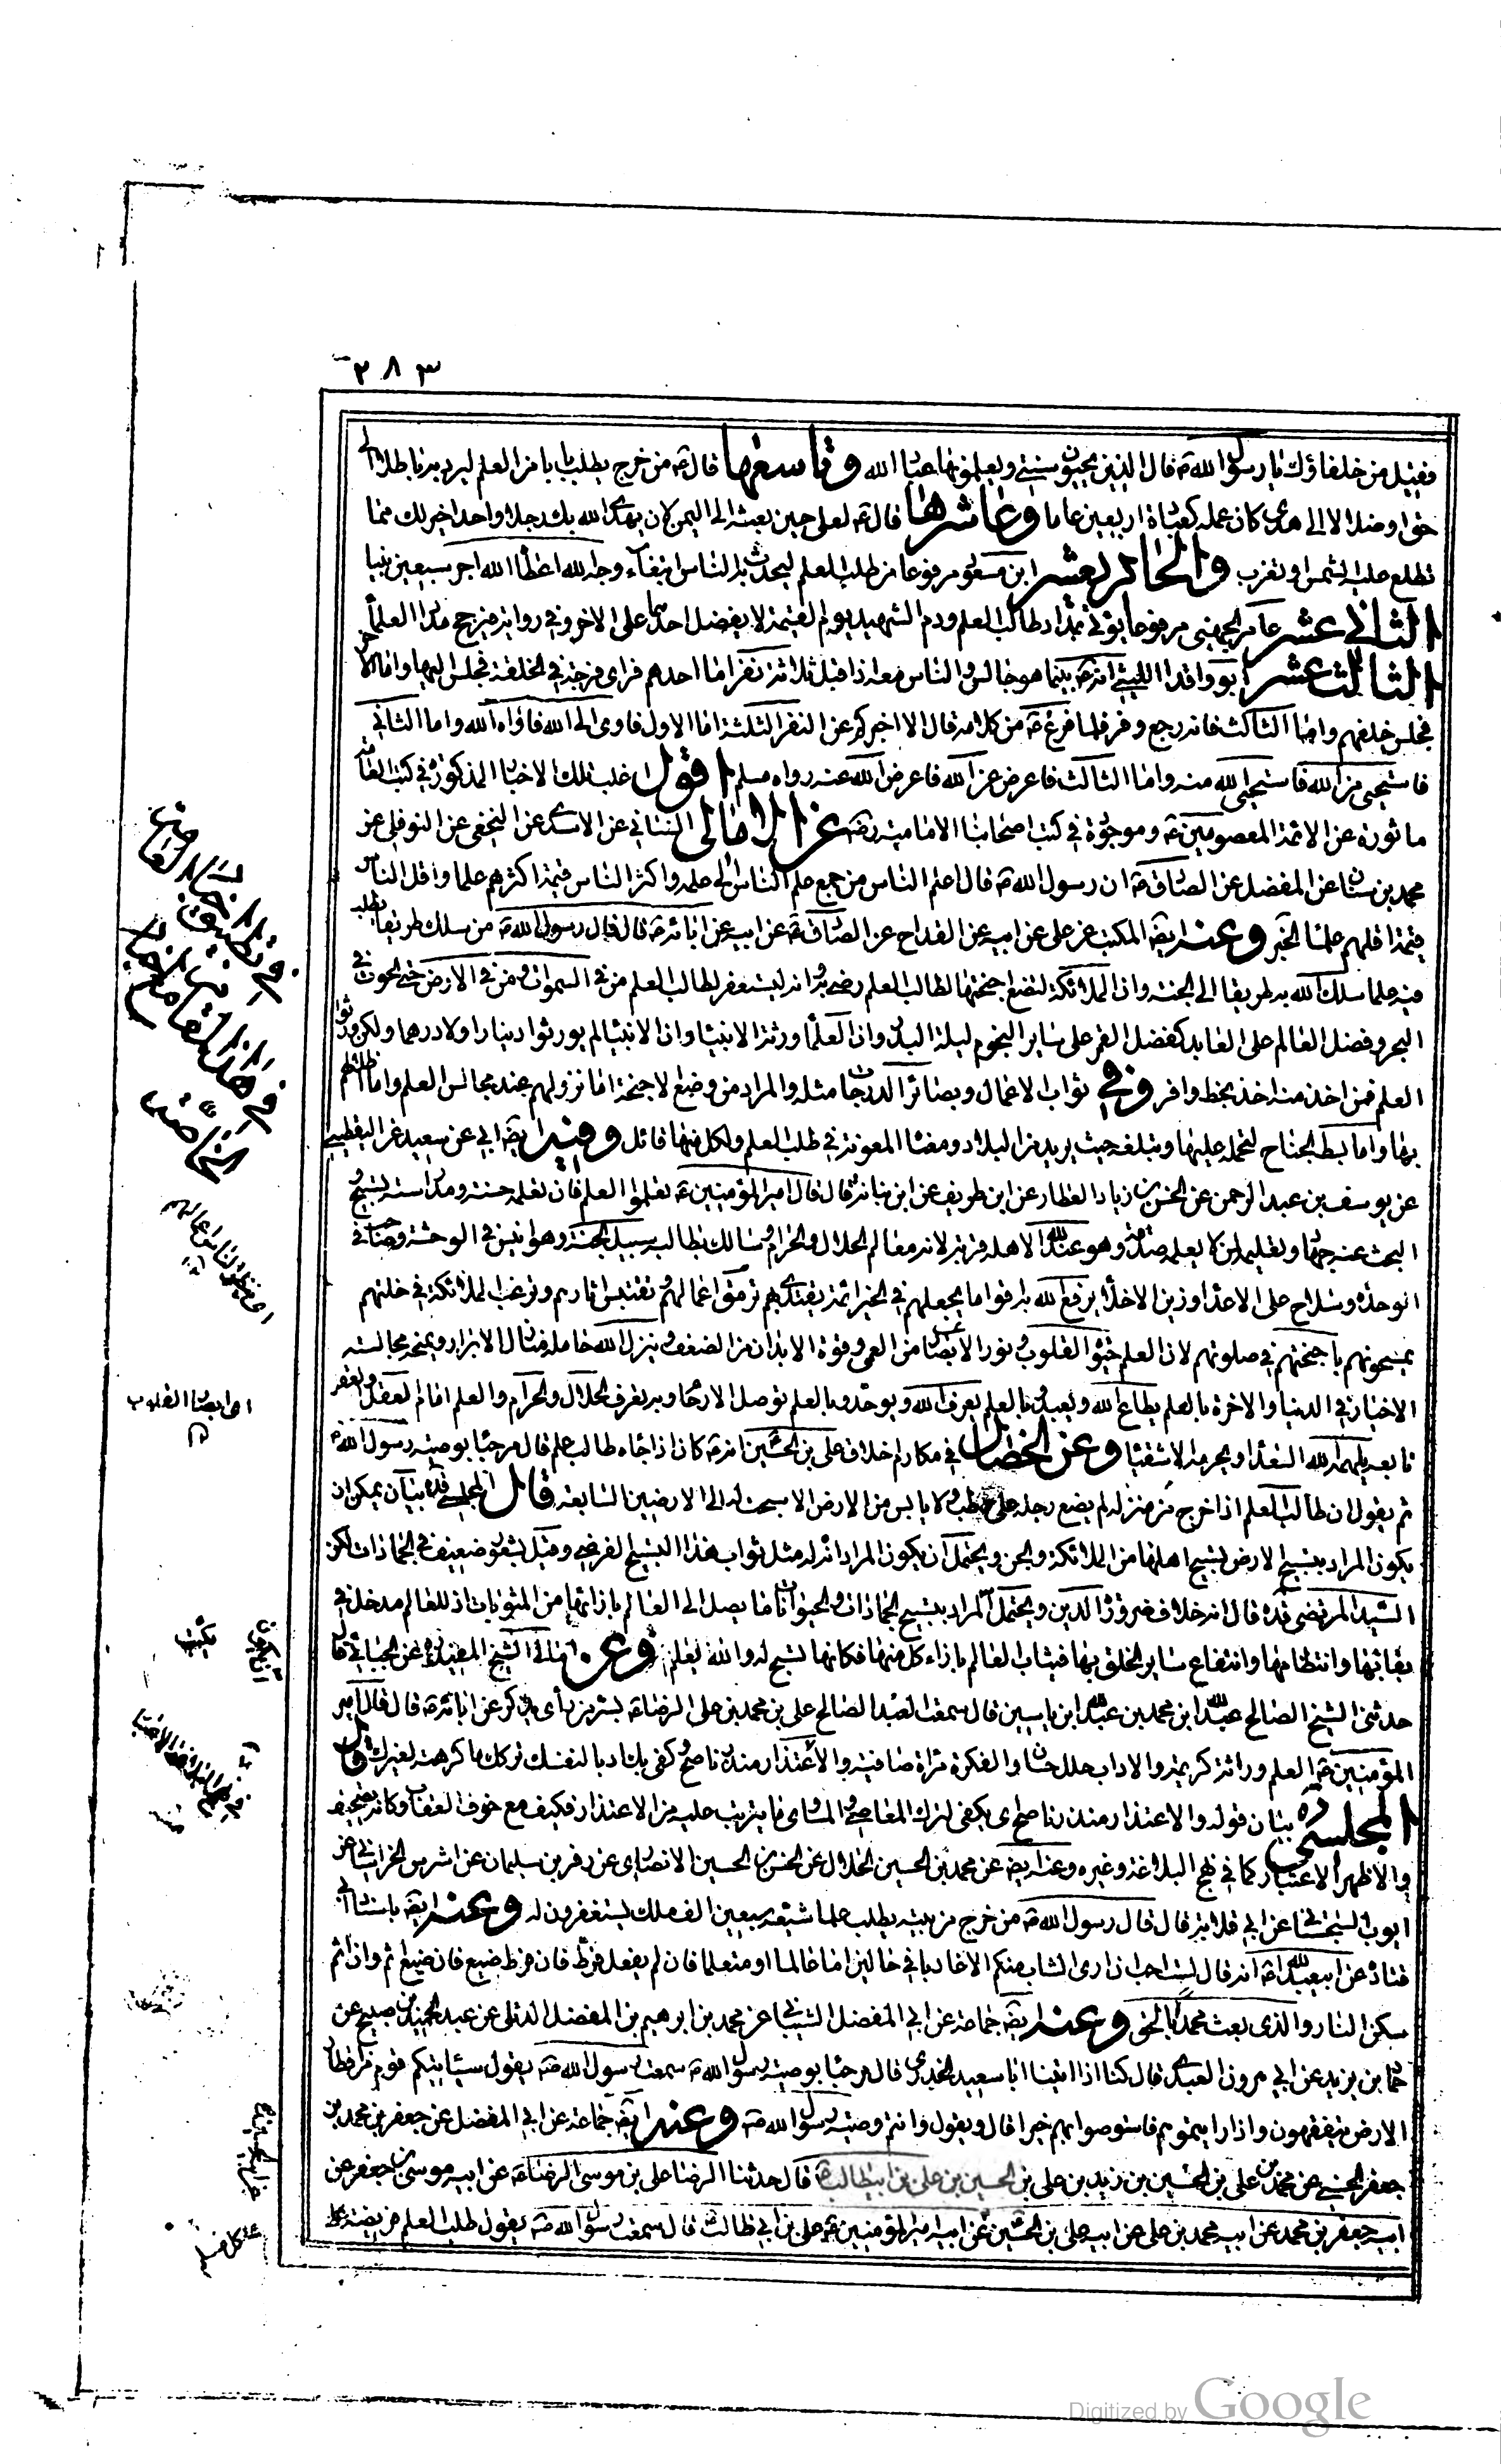 ٢٨٣
فقيل من خلفاؤك يا رسول الله ص قال الذين يحيون سنتي ويعلمونها عباد الله وتاسعها قال ص من خرج يطلب بابا من العلم ليرد به باطلا الى
حق او ضلالا الى هدى كان عمله كعبادة اربعين عاما وعاشرها قال ص لعلي حين بعثه الى اليمن لان يهدى الله بك رجلا واحدا خير لك مما
تطلع عليه الشمس او تغرب والحادي عشر ابن مسعود مرفوعا من طلب العلم ليحدث به الناس ابتغاء وجه الله اعطاه الله اجر سبعين نبيا
الثاني عشر عامر الجهني مرفوعا يؤتى بمداد طالب العلم ودم الشهيد يوم القيمة لا يفضل احدهما على الاخر وفي رواية فيرجح مداد العلماء
الثالث عشر ابو واقد الليثي انه ص بينما هو جالس والناس معه اذ اقبل ثلاثة نفر اما احدهم فراى فرجة في الحلقة فجلس اليها واما الاخر
فجلس خلفهم واما الثالث فانه رجع وفر فلما فرغ ص من كلامه قال الا اخبركم عن النفر الثلثة اما الاول فاوى الى الله فاواه الله واما الثاني
فاستحيى من الله فاستحيى الله منه واما الثالث فاعرض عن الله فاعرض الله عنه رواه مسلم اقول اغلب تلك الاخبار المذكورة في كتب العامة
ماثورة عن الائمة المعصومين ع وموجودة في كتب اصحابنا الامامية رض عن الامالي السناني عن الاسدي عن النخعي عن النوفلي عن
محمد بن سنان عن المفضل عن الصادق ع ان رسول الله ص قال اعلم الناس من جمع علم الناس الى علمه واكثر الناس قيمة اكثرهم علما واقل الناس
قيمة اقلهم علما الخبر وعنه ايضا المكتب عن علي عن ابيه عن القداح عن الصادق ع عن ابيه عن ابائه ع قال قال رسول الله ص من سلك طريقا يطلب
فيه علما سلك الله به طريقا الى الجنة وان الملائكة لتضع اجنحتها لطالب العلم رضى به وانه ليستغفر لطالب العلم من في السموات ومن في الارض حتى الحوت في
البحر وفضل العالم على العابد كفضل القمر على ساير النجوم ليلة البدر وان العلماء ورثة الانبياء وان الانبياء لم يورثوا دينارا ولا درهما ولكن ورثوا
العلم فمن اخذ منه اخذ بحظ وافر وفي ثواب الاعمال وبصائر الدرجات مثله والمراد من وضع الاجنحة اما نزولهم عند مجالس العلم واما اظلالهم
بها واما بسط الجناح لتحمله عليها وتبلغه حيث يريد من البلاد ومعناه المعونة في طلب العلم ولكل منها قائل وفيه ايضا ابي عن سعيد عن اليقطيني
عن يوسف بن عبد الرحمن عن الحسن بن زياد العطار عن ابن طريف عن ابن نباتة قال قال امير المؤمنين ع تعلموا العلم فان تعلمه حسنة ومدارسته تسبيح و
البحث عنه جهاد وتعليمه لمن لا يعلمه صدقة وهو عند الله لاهله قربة لانه معالم الحلال والحرام وسالك بطالبه سبيل الجنة وهو انيس في الوحشة وصاحب في
الوحدة وسلاح على الاعداء وزين الاخلاء يرفع الله به اقواما يجعلهم في الخير ائمة يقتدى بهم ترمق اعمالهم وتقتبس اثارهم وترغب الملائكة في خلتهم
يمسحونهم باجنحتهم في صلوتهم لان العلم حيوة القلوب ونور الابصار من العمى وقوة الابدان من الضعف وينزل الله حامله منازل الابرار ويمنحه مجالسة
الاخيار في الدنيا والاخرة بالعلم يطاع الله ويعبد وبالعلم يعرف الله ويوحد وبالعلم توصل الارحام وبه يعرف الحلال والحرام والعلم امام العقل والعقل
تابعه يلهمه الله السعداء ويحرمه الاشقياء وعن الخصال في مكارم اخلاق علي بن الحسين انه ع كان اذا جاءه طالب علم قال مرحبا بوصية رسول الله ص
ثم يقول ان طالب العلم اذا خرج من منزله لم يضع رجله على رطب ولا يابس من الارض الا سبحت له الى الارضين السابعة قال المجلسي قده بيان يمكن ان
يكون المراد بتسبيح الارض تسبيح اهلها من الملائكة والجن ويحتمل ان يكون المراد انه له مثل ثواب هذا التسبيح الفرضي وقيل بشعور ضعيف في الجمادات لكن
السيد المرتضى قده قال انه خلاف ضرورة الدين ويحتمل المراد بتسبيح الجمادات والحيوانات ما يصل الى العالم بازائها من المثوبات اذ للعالم مدخل في
بقائها وانتظامها وانتفاع ساير الخلق بها فيثاب العالم بازاء كل منها فكانها تسبح له والله يعلم وعن امالي الشيخ المفيد ره عن الجبائي قال
حدثني الشيخ الصالح عبد الله ابن محمد بن عبد الله ابن ياسين قال سمعت العبد الصالح علي بن محمد بن علي الرضا ع بسر من راى يذكر عن ابائه ع قال قال امير
المؤمنين ع العلم وراثة كريمة والاداب حلل حسان والفكرة مراة صافية والاعتذار منذر ناصح وكفى بك ادبا لنفسك تركك ما كرهته لغيرك قال
المجلسي ره بيان قوله والاعتذار منذر ناصح اى يكفى لترك المعاصي والمساوى ما يترتب عليه من الاعتذار فكيف مع خوف العقاب وكانه تصحيف
والاظهر الاعتبار كما في نهج البلاغة وغيره وعنه ايضا عن محمد بن الحسين الخلال عن الحسن بن الحسين الانصارى عن زفر بن سليمان عن اشرس الخراساني عن
ايوب السجستاني عن ابي قلابة قال قال رسول الله ص من خرج من بيته يطلب علما شيعه سبعين الف ملك يستغفرون له وعنه ايضا باسناد ابي
قتادة عن ابي عبد الله ع انه قال لست احب ان ارى الشاب منكم الا غاديا في حالين اما عالما او متعلما فان لم يفعل فرط فان فرط ضيع فان ضيع اثم وان اثم
سكن النار والذى بعث محمدا بالحق وعنه ايضا جماعة عن ابي المفضل الشيباني عن محمد بن ابرهيم بن المفضل الديلي عن عبد الحميد بن صبيح عن
حماد بن يزيد عن ابي هرون العبدي قال كنا اذا اتينا ابا سعيد الخدري قال مرحبا بوصية رسول الله ص سمعت رسول الله ص يقول سياتيكم قوم من اقطار
الارض يتفقهون واذا رايتموهم فاستوصوا بهم خيرا قال ويقول وانتم وصية رسول الله ص وعنه ايضا جماعة عن ابي المفضل عن جعفر بن محمد بن
جعفر الحسني عن محمد بن علي بن الحسين بن زيد بن علي بن الحسين بن علي بن ابيطالب ع قال حدثنا الرضا علي بن موسى الرضا ع عن ابيه موسى بن جعفر عن
ابيه جعفر بن محمد عن ابيه محمد بن علي عن ابيه علي بن الحسين عن ابيه امير المؤمنين ع علي بن ابي طالب قال سمعت رسول الله ص يقول طلب العلم فريضة على
في تطبيق الاخبار العامية
في هذا المقام مع اخبار
الخاصة
اى ابصار القلوب
على كل مسلم
Digitized by Google